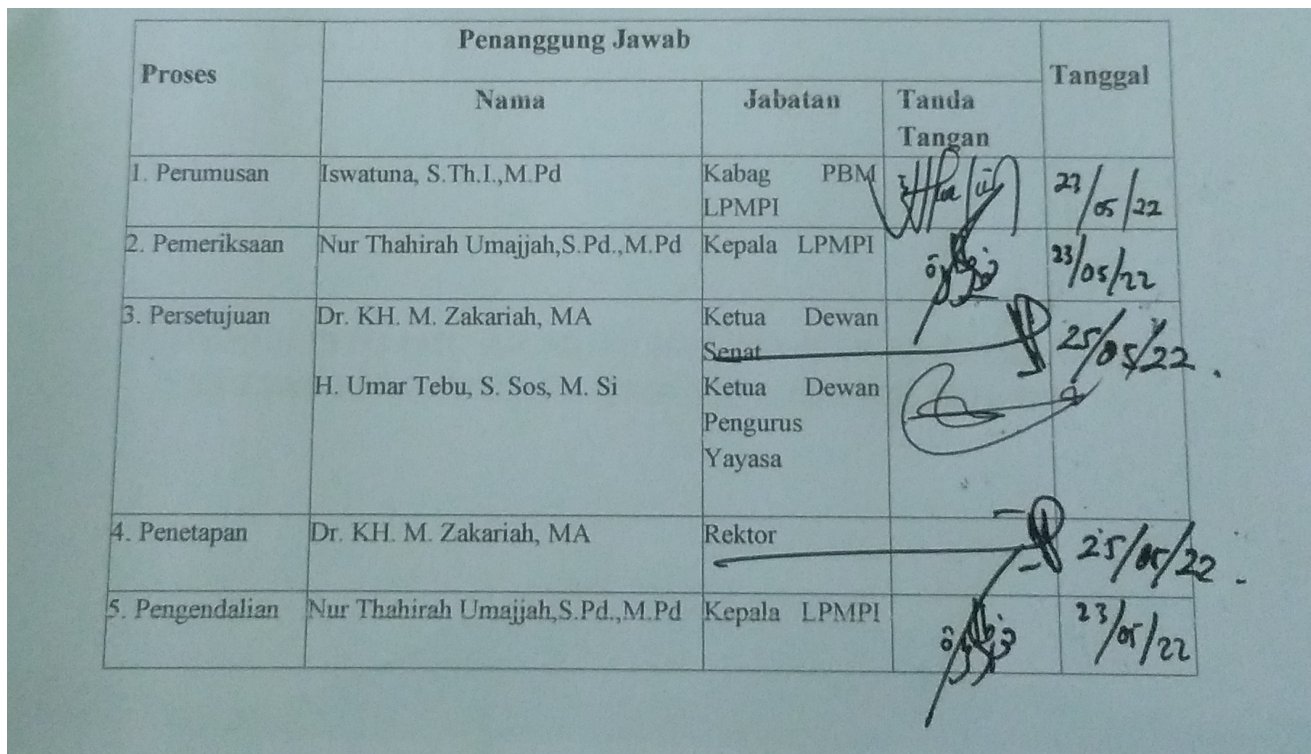 Penanggung Jawab
Proses
Tanggal
Nama
Jabatan
Tanda
Tangan
1. Perumusan
Iswatuna, S.Th.I.,M.Pd
Kabag PBM
LPMPI
/05/22
2. Pemeriksaan
Nur Thahirah Umajjah,S.Pd.,M.Pd
Kepala LPMPI
23/05/22
3. Persetujuan
Dr. KH. M. Zakariah, MA
Ketua Dewan
Senat
25/05/22.
H. Umar Tebu, S. Sos, M. Si
Ketua Dewan
Pengurus
Yayasa
4. Penetapan
Dr. KH. M. Zakariah, MA
Rektor
25/05/22.
5. Pengendalian
Nur Thahirah Umajjah,S.Pd.,M.Pd
Kepala LPMPI
23/05/22